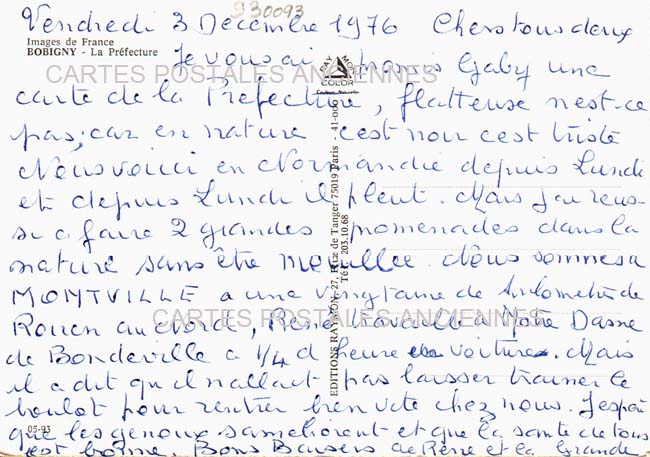 930093
Vendredi 3 Décembre 1976 Chers tous deux
Images de France
BOBIGNY - La Préfecture
Je vous ai promis Gaby une
CARTES POSTALES ANCIENNES
RAYMON
COLOR
Couleurs Naturelles
carte de la Préfecture, flatteuse n'est-ce
pas, car en nature c'est noir c'est triste
Nous voici en Normandie depuis Lundi
et depuis Lundi il pleut. Mais j'ai reus-
si a faire 2 grandes promenades dans la
nature sans être mouillée Nous sommes a
MONTVILLE a une vingtaine de kilometres de
Rouen au nord, René travaille a Notre Dame
CARTES POSTALES ANCIENNES
de Bondeville a 1/4 d heure de voiture. Mais
il a dit qu il n allait pas laisser trainer le
boulot pour rentrer bien vite chez nous. J espère
que les genoux s ameliorent et que la santé de tous
est bonne. Bons Baisers de René et la Grande
05-93
EDITIONS RAYMON, 27, Rue de Tanger 75019 Paris 41-040
Tél. 203.10.68